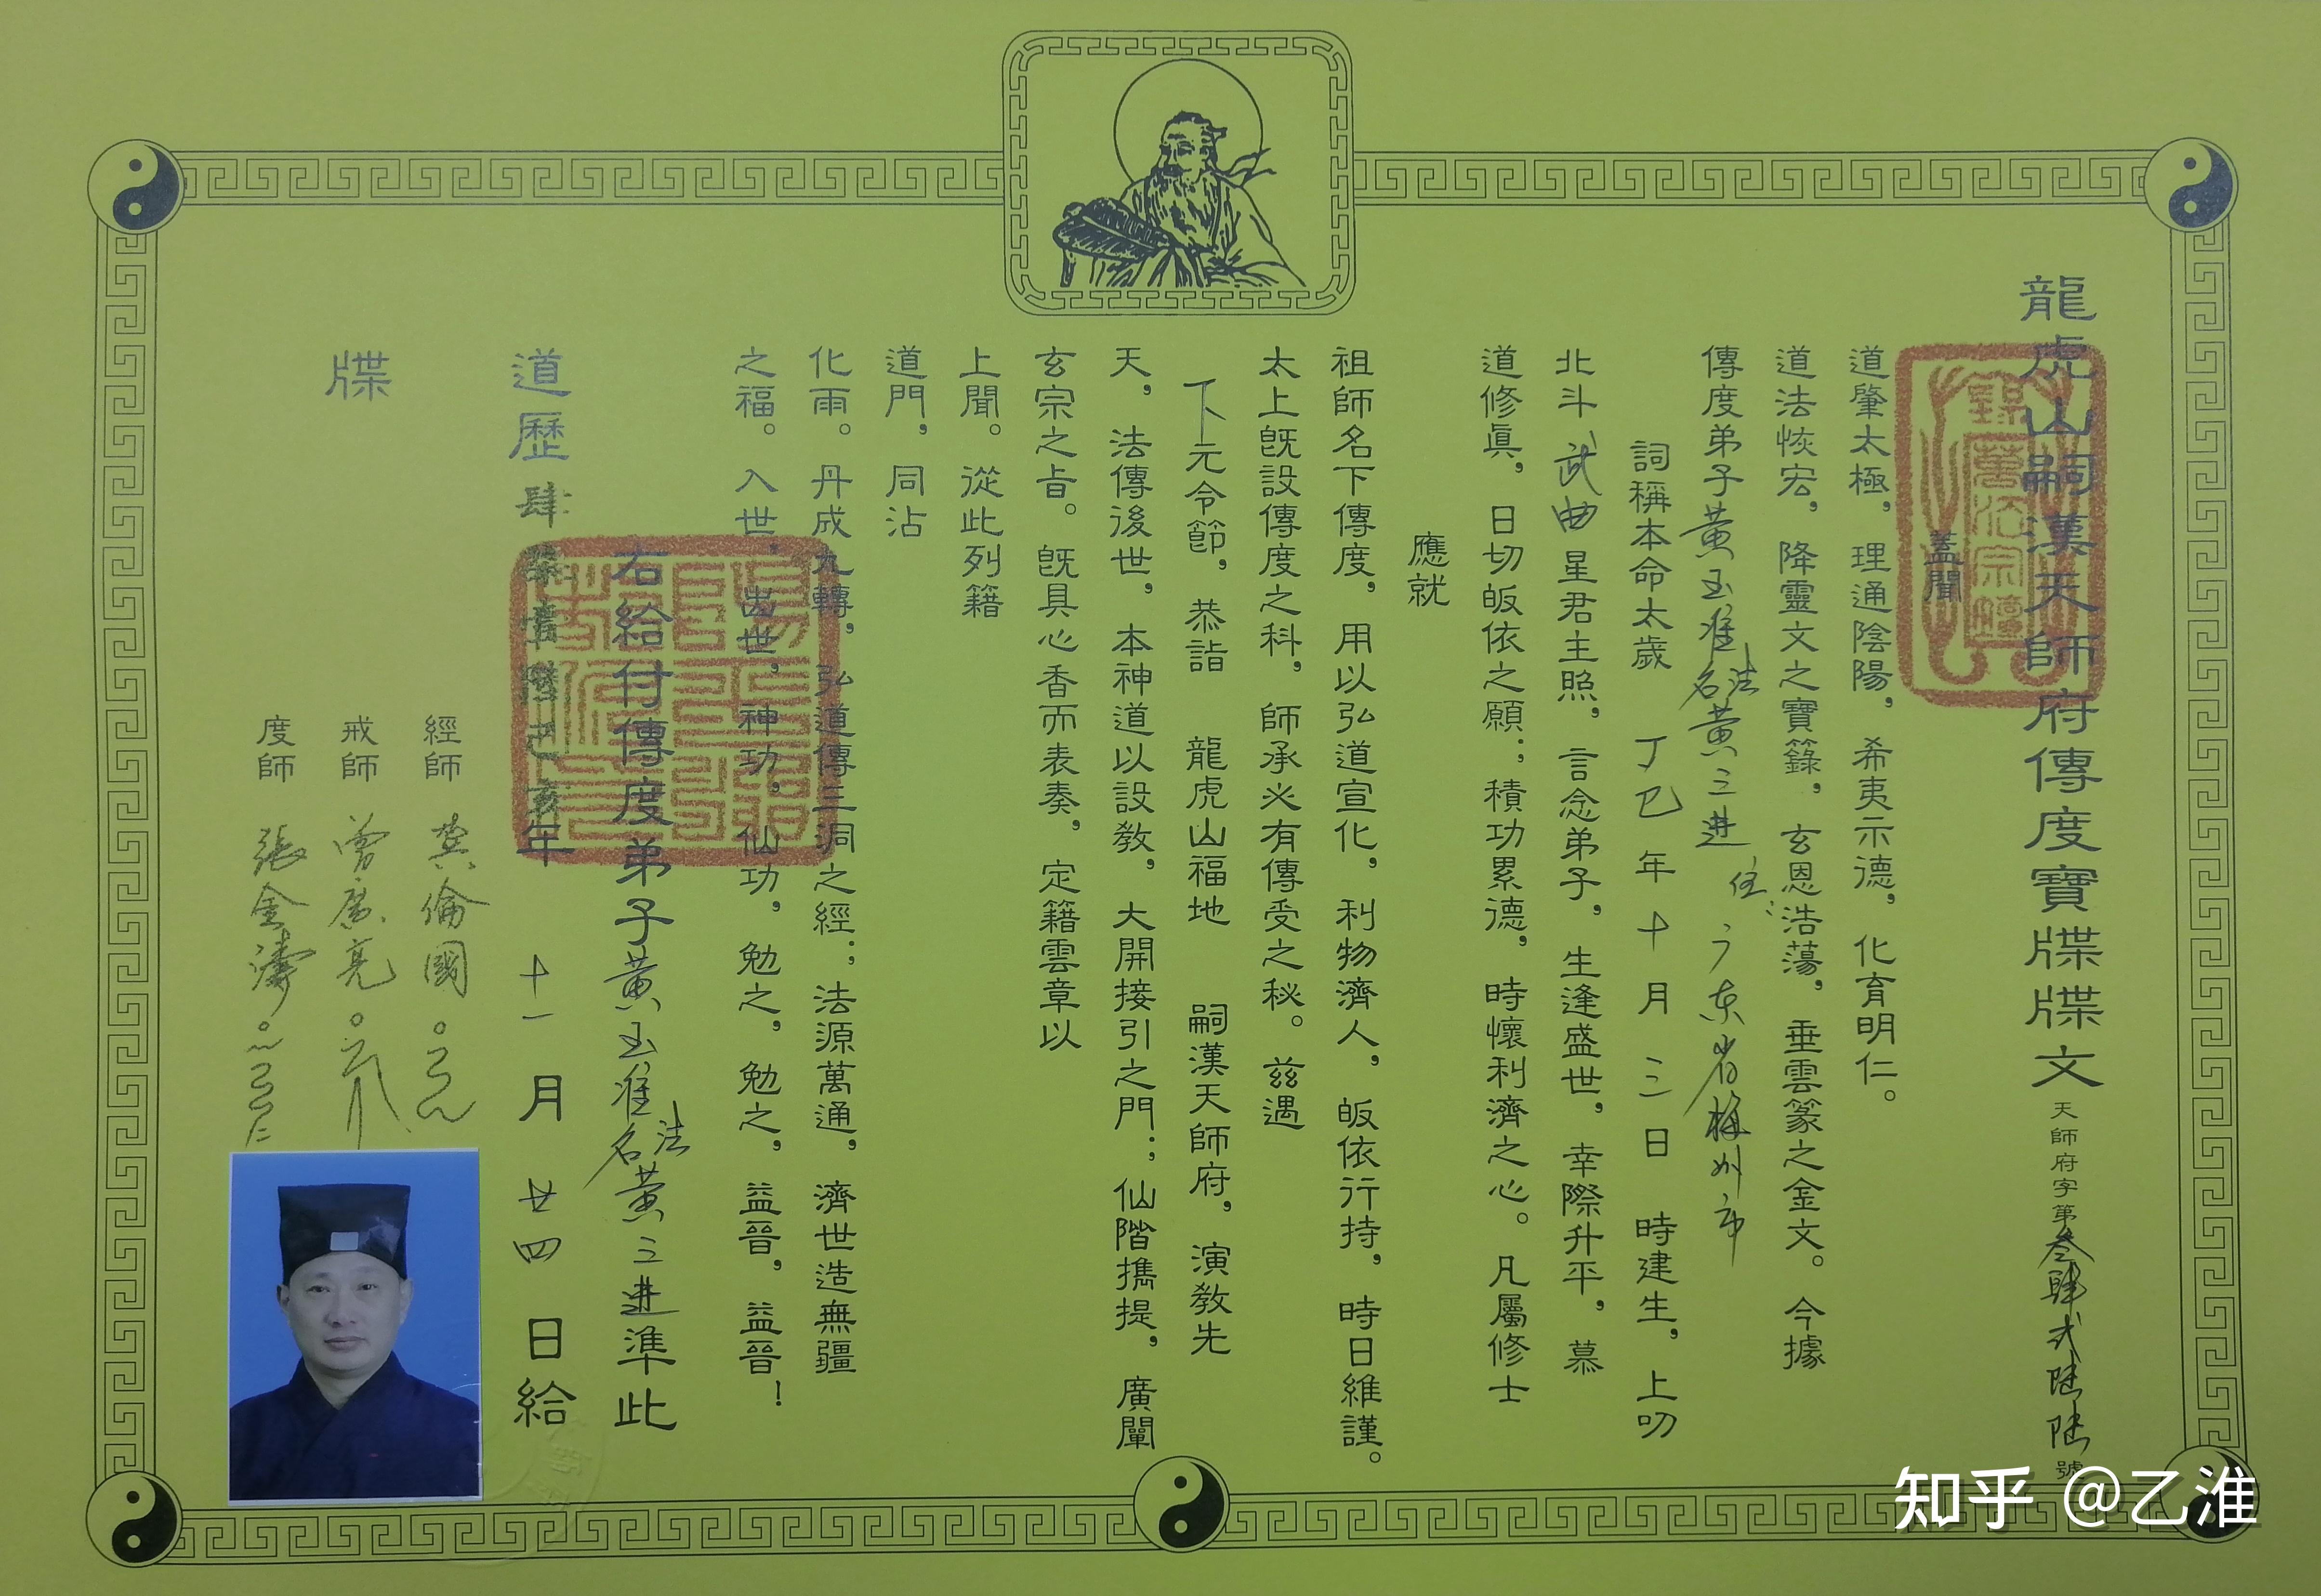 龍虎山嗣漢天師府傳度寶牒牒文 天師府字第叁肆弍陆陆號
蓋聞
道肇太極，理通陰陽，希夷示德，化育明仁。
道法恢宏，降靈文之寶籙，玄恩浩蕩，垂雲篆之金文。今據
傳度弟子黄玉淮法名黄三进 住：广东省梅州市
詞稱本命太歲 丁巳 年 十 月 三 日 時建生，上叨
北斗 武曲 星君主照，言念弟子，生逢盛世，幸際升平，慕
道修眞，日切皈依之願；積功累德，時懷利濟之心。凡屬修士
應就
祖師名下傳度，用以弘道宣化，利物濟人，皈依行持，時日維謹。
太上既設傳度之科，師承必有傳受之秘。兹遇
下元令節，恭詣 龍虎山福地 嗣漢天師府，演教先
天，法傳後世，本神道以設教，大開接引之門；仙階攜提，廣闡
玄宗之旨。既具心香而表奏，定籍雲章以
上聞。從此列籍
道門，同沾
化雨。丹成九轉，弘道傳三洞之經；法源萬通，濟世造無疆
之福。入世，出世，神功，仙功，勉之，勉之，益晉，益晉！
右給付傳度弟子黄玉淮法名黄三进準此
道歷肆柒壹陸己亥年 十一 月 廿四 日給
牒
經師 龚倫國
戒師 曾廣亮
度師 張金濤
知乎 @乙淮